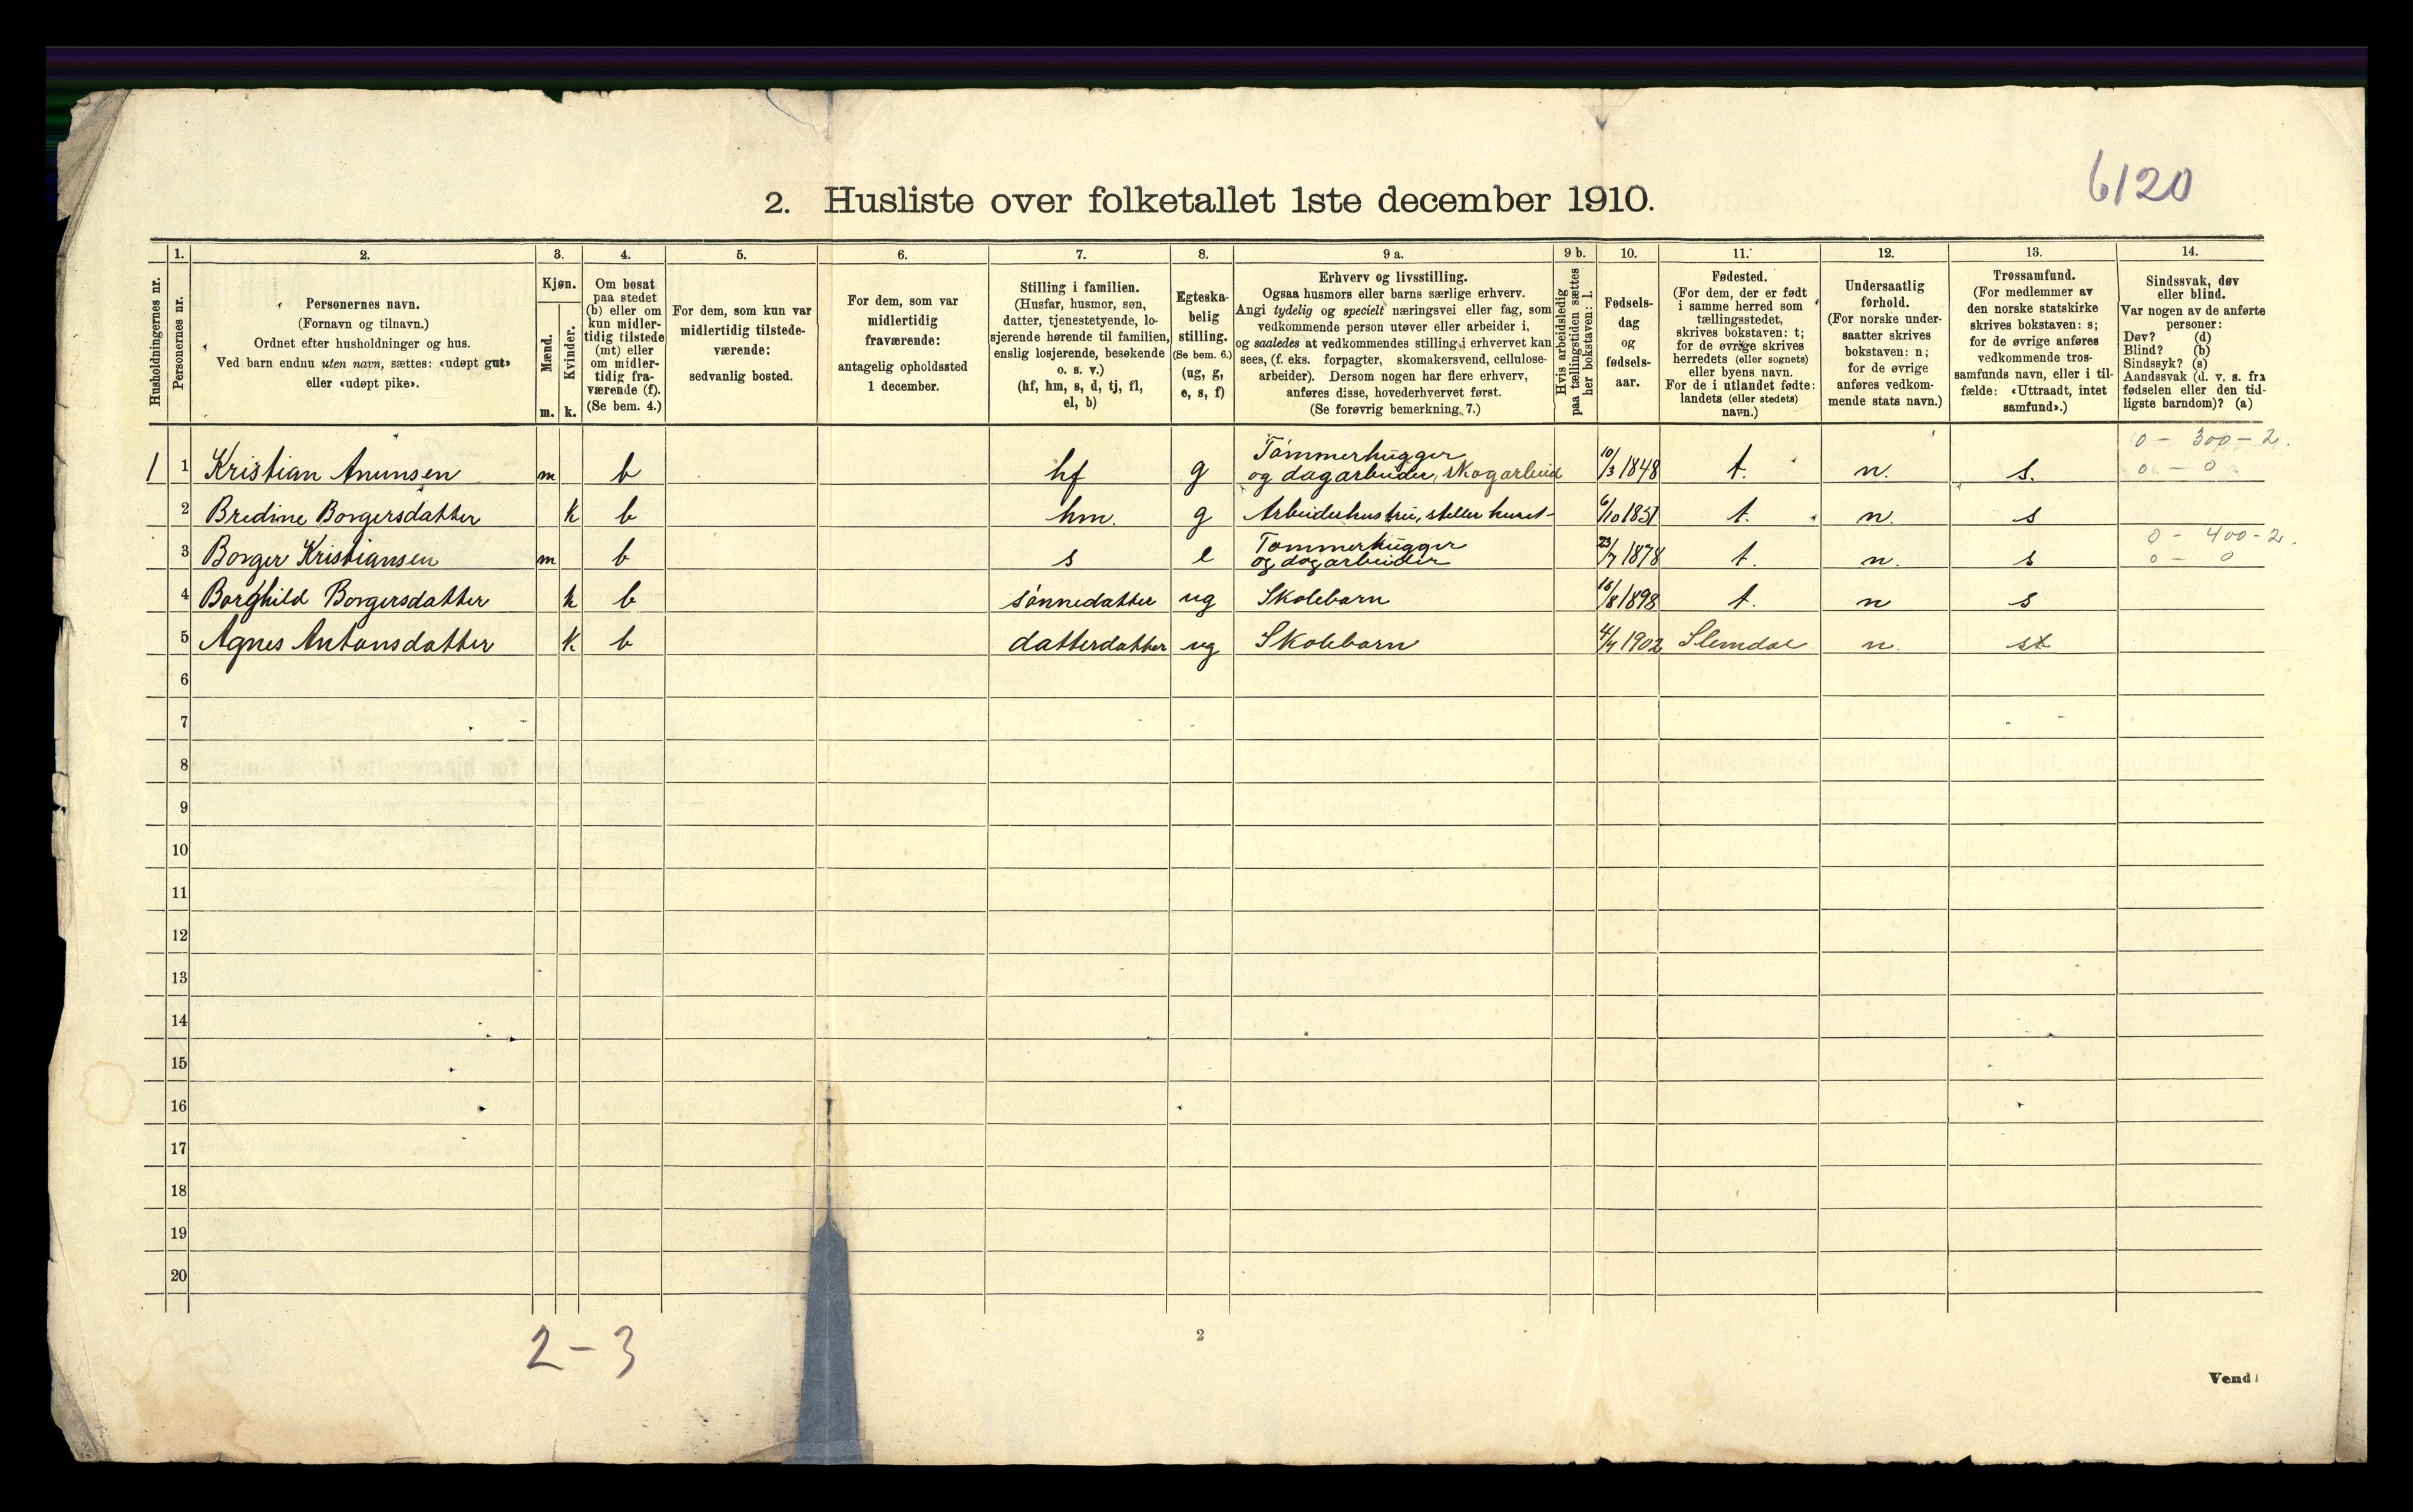 6120
2. Husliste over folketallet 1ste december 1910.
Husholdningernes nr.
1.
Personernes nr.
2.
Personernes navn.
(Fornavn og tilnavn.)
Ordnet efter husholdninger og hus.
Ved barn endnu uten navn, sættes: «udøpt gut»
eller «udøpt pike».
3.
Kjøn.
Mænd.
m.
Kvinder.
k.
4.
Om bosat
paa stedet
(b) eller om
kun midler-
tidig tilstede
(mt) eller
om midler-
tidig fra-
værende (f).
(Se bem. 4.)
5.
For dem, som kun var
midlertidig tilstede-
værende:
sedvanlig bosted.
6.
For dem, som var
midlertidig
fraværende:
antagelig opholdssted
1 december.
7.
Stilling i familien.
(Husfar, husmor, søn,
datter, tjenestetyende, lo-
sjerende hørende til familien,
enslig losjerende, besøkende
o. s. v.)
(hf, hm, s, d, tj, fl,
el, b)
8.
Egteska-
belig
stilling.
(Se bem. 6.)
(ug, g,
e, s, f)
9 a.
Erhverv og livsstilling.
Ogsaa husmors eller barns særlige erhverv.
Angi tydelig og specielt næringsvei eller fag, som
vedkommende person utøver eller arbeider i,
og saaledes at vedkommendes stilling i erhvervet kan
sees, (f. eks. forpagter, skomakersvend, cellulose-
arbeider). Dersom nogen har flere erhverv,
anføres disse, hovederhvervet først.
(Se forøvrig bemerkning 7.)
9 b.
Hvis arbeidsledig
paa tællingstiden sættes
her bokstaven: l.
10.
Fødsels-
dag
og
fødsels-
aar.
11.
Fødested.
(For dem, der er født
i samme herred som
tællingsstedet,
skrives bokstaven: t;
for de øvrige skrives
herredets (eller sognets)
eller byens navn.
For de i utlandet fødte:
landets (eller stedets)
navn.)
12.
Undersaatlig
forhold.
(For norske under-
saatter skrives
bokstaven: n;
for de øvrige
anføres vedkom-
mende stats navn.)
13.
Trossamfund.
(For medlemmer av
den norske statskirke
skrives bokstaven: s;
for de øvrige anføres
vedkommende tros-
samfunds navn, eller i til-
fælde: «Uttraadt, intet
samfund».)
14.
Sindssvak, døv
eller blind.
Var nogen av de anførte
personer:
Døv? (d)
Blind? (b)
Sindssyk? (s)
Aandssvak (d. v. s. fra
fødselen eller den tid-
ligste barndom)? (a)
0 - 300 - 2.
1 1 Kristian Anunsen m b hf g Tømmerhugger og dagarbeider, skogarbeid 10/3 1848 t. n. s. 0 - 0
2 Bredine Borgersdatter k b hm. g Arbeiderhustru, steller huset 6/10 1851 t. n. s
0 - 400 - 2.
3 Borger Kristiansen m b s e Tømmerhugger og dagarbeider 23/7 1878 t. n. s 0 - 0
4 Borghild Borgersdatter k b sønnedatter ug Skolebarn 18/8 1898 t. n s
5 Agnes Antonsdatter k b datterdatter ug Skolebarn 4/4 1902 Slemdal n. st
6
7
8
9
10
11
12
13
14
15
16
17
18
19
20
2 - 3
2
Vend!